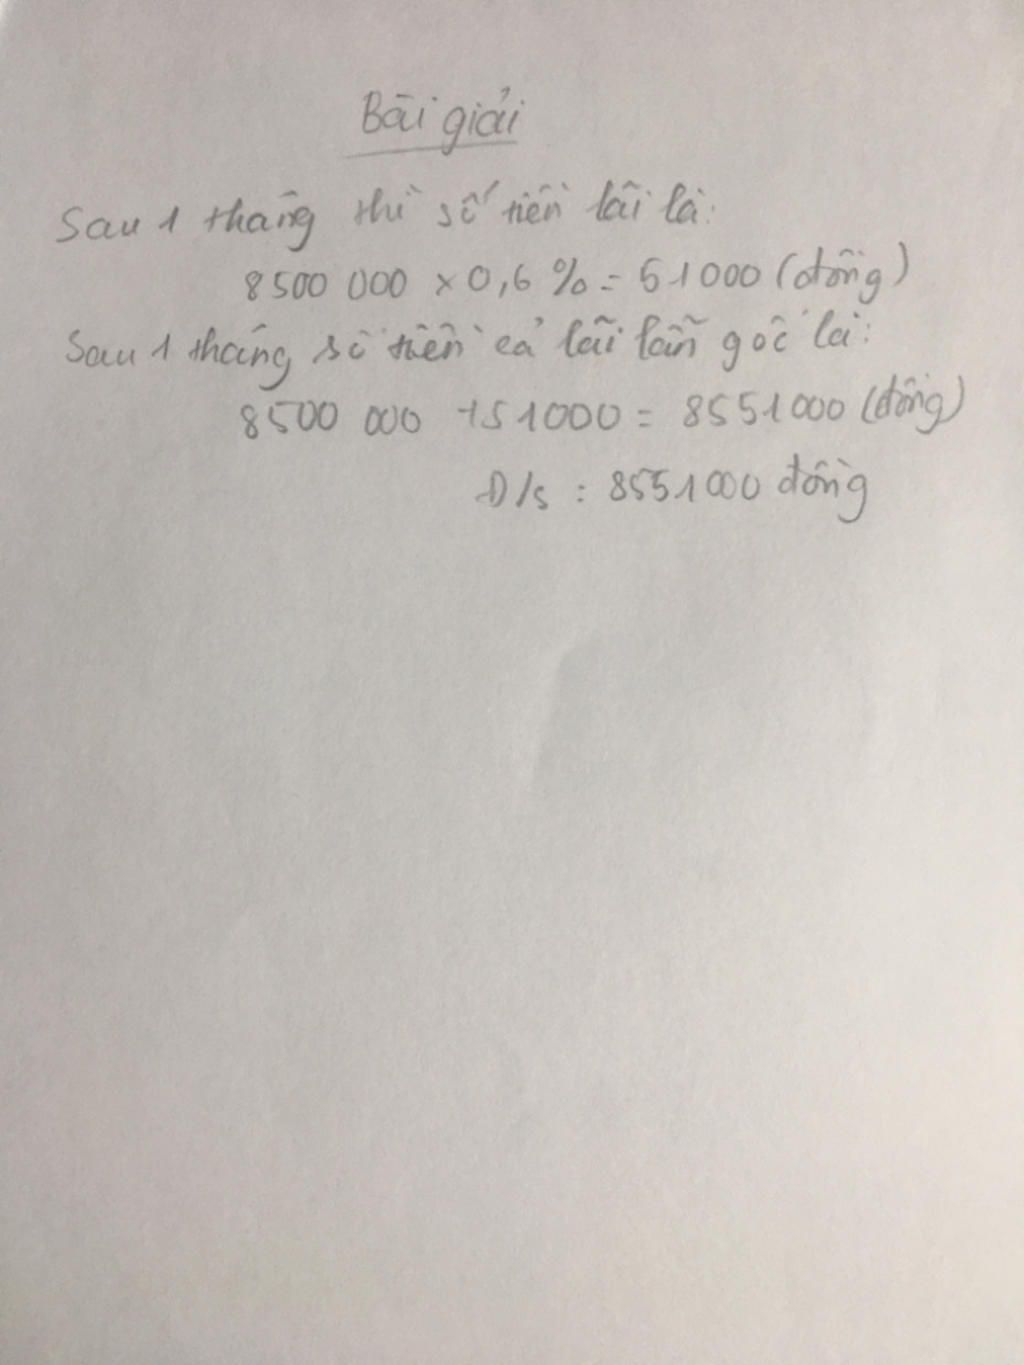 Bài giải
Sau 1 tháng thì số tiền lãi là:
8500 000 x 0,6 % = 51000 (đồng)
Sau 1 tháng số tiền cả lãi lẫn gốc là:
8500 000 + 51000 = 8551000 (đồng)
Đ/s : 8551000 đồng